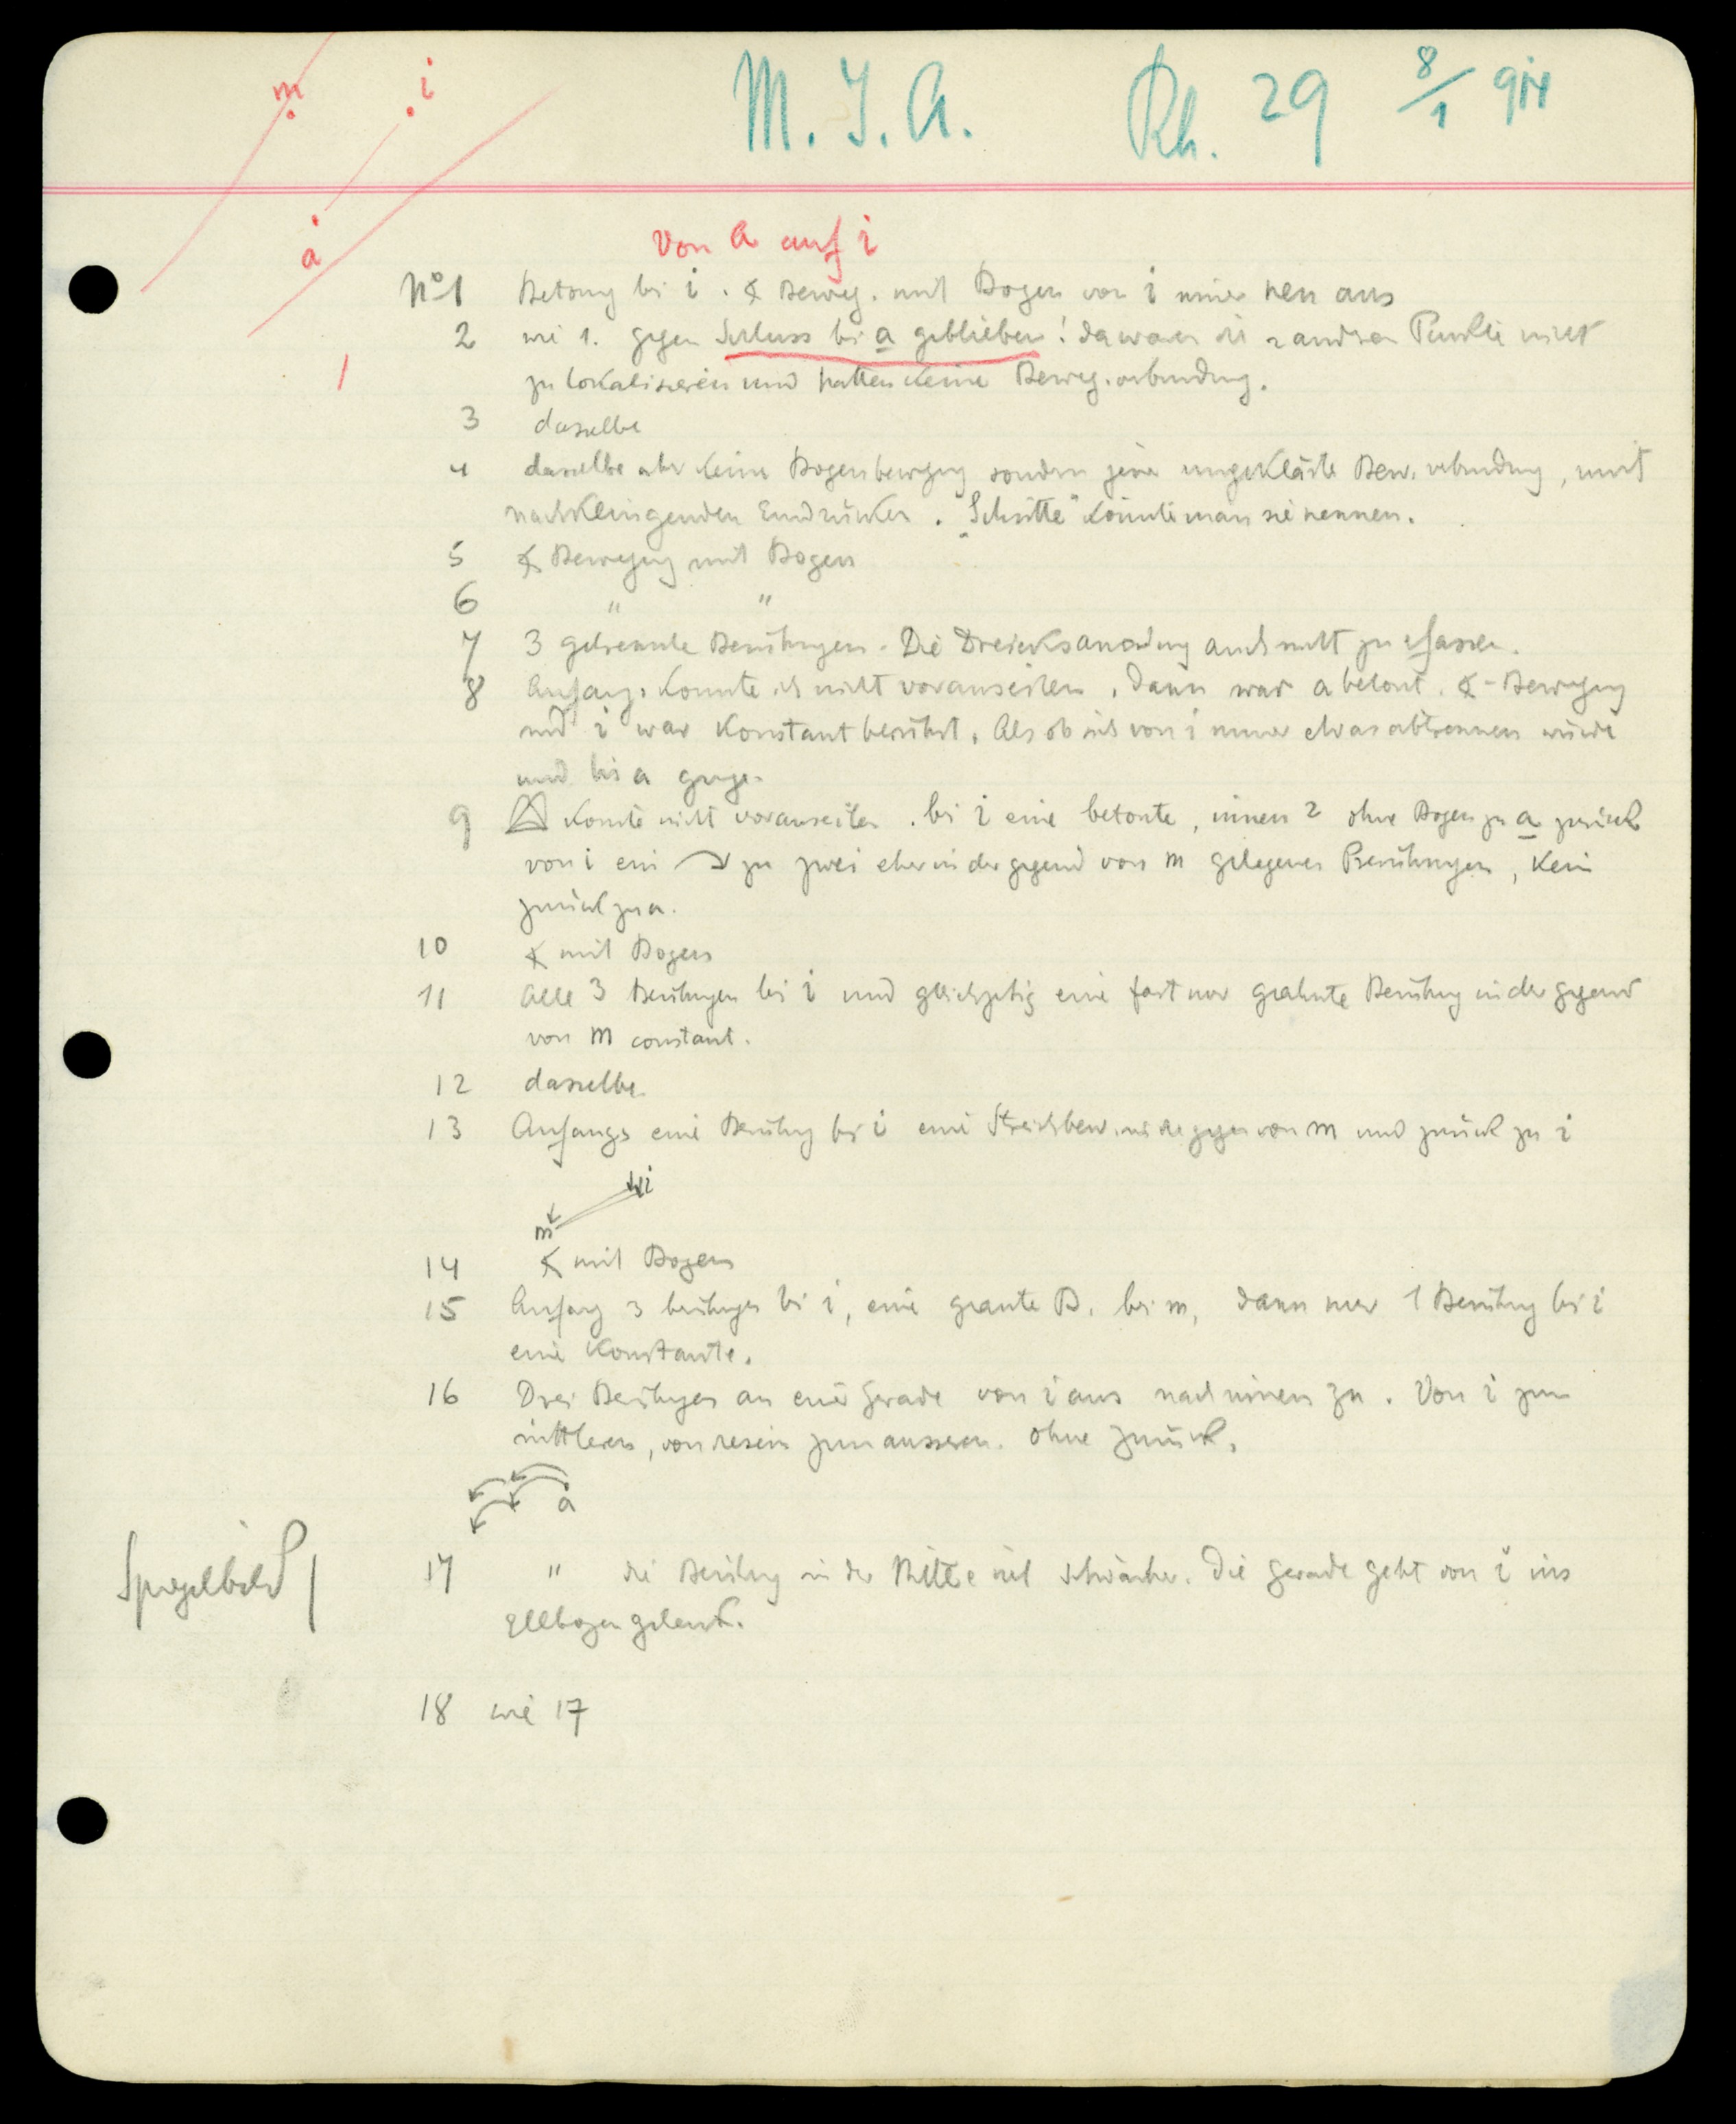 m i
M. I. A. Rh. 29 8/1
a
Von a auf i
No 1 Betonung bei i. ∢ Beweg. mit Bogen von i immer neu aus
2 wie 1. gegen Schluss bei a geblieben! da waren die 2 andren Punkte nicht
1 zu lokalisieren und hatten keine Beweg. verbindung.
3 dasselbe
4 dasselbe aber keine Bogenbewegung sondern jene ungeklärte Bew. verbindung, mit
nachklingenden Eindrücken. "Schritte" könnte man sie nennen.
5 ∢ Bewegung mit Bogen
6 " "
7 3 getrennte Berührungen. Die Dreiecksanordnung auch nicht zu erfassen.
8 Anfangs konnte ich nicht vorauseilen, dann war a betont. ∢-Bewegung
und i war konstant berührt. Als ob sich von i immer etwas abtrennen würde
und bis a ginge.
9 konnte nicht vorauseilen. bei i eine betonte, innen 2 ohne Bogen zu a zurück
von i ein zu zwei eher in der gegend von m gelegenen Berührungen, kein
zurück zu a.
10 ∢ mit Bogen
11 Alle 3 Berührungen bei i und gleichzeitig eine fast nur geahnte Berührung in der gegend
von m constant.
12 dasselbe
13 Anfangs eine Berührung bei i eine Streichbew. in die gegend von m und zurück zu i
i
m
14 ∢ mit Bogen
15 Anfang 3 berührungen bei i, eine geahnte B. bei m, dann nur 1 Berührung bei i
eine Konstante.
16 Drei Berührungen an einer Gerade von i aus nach innen zu. Von i zum
mittleren, von diesem zum ausseren. ohne Zurück.
a
Spiegelbild 17 " die Berührung in der Mitte viel schwächer. Die Gerade geht von i ins
Ellbogengelenk.
18 wie 17